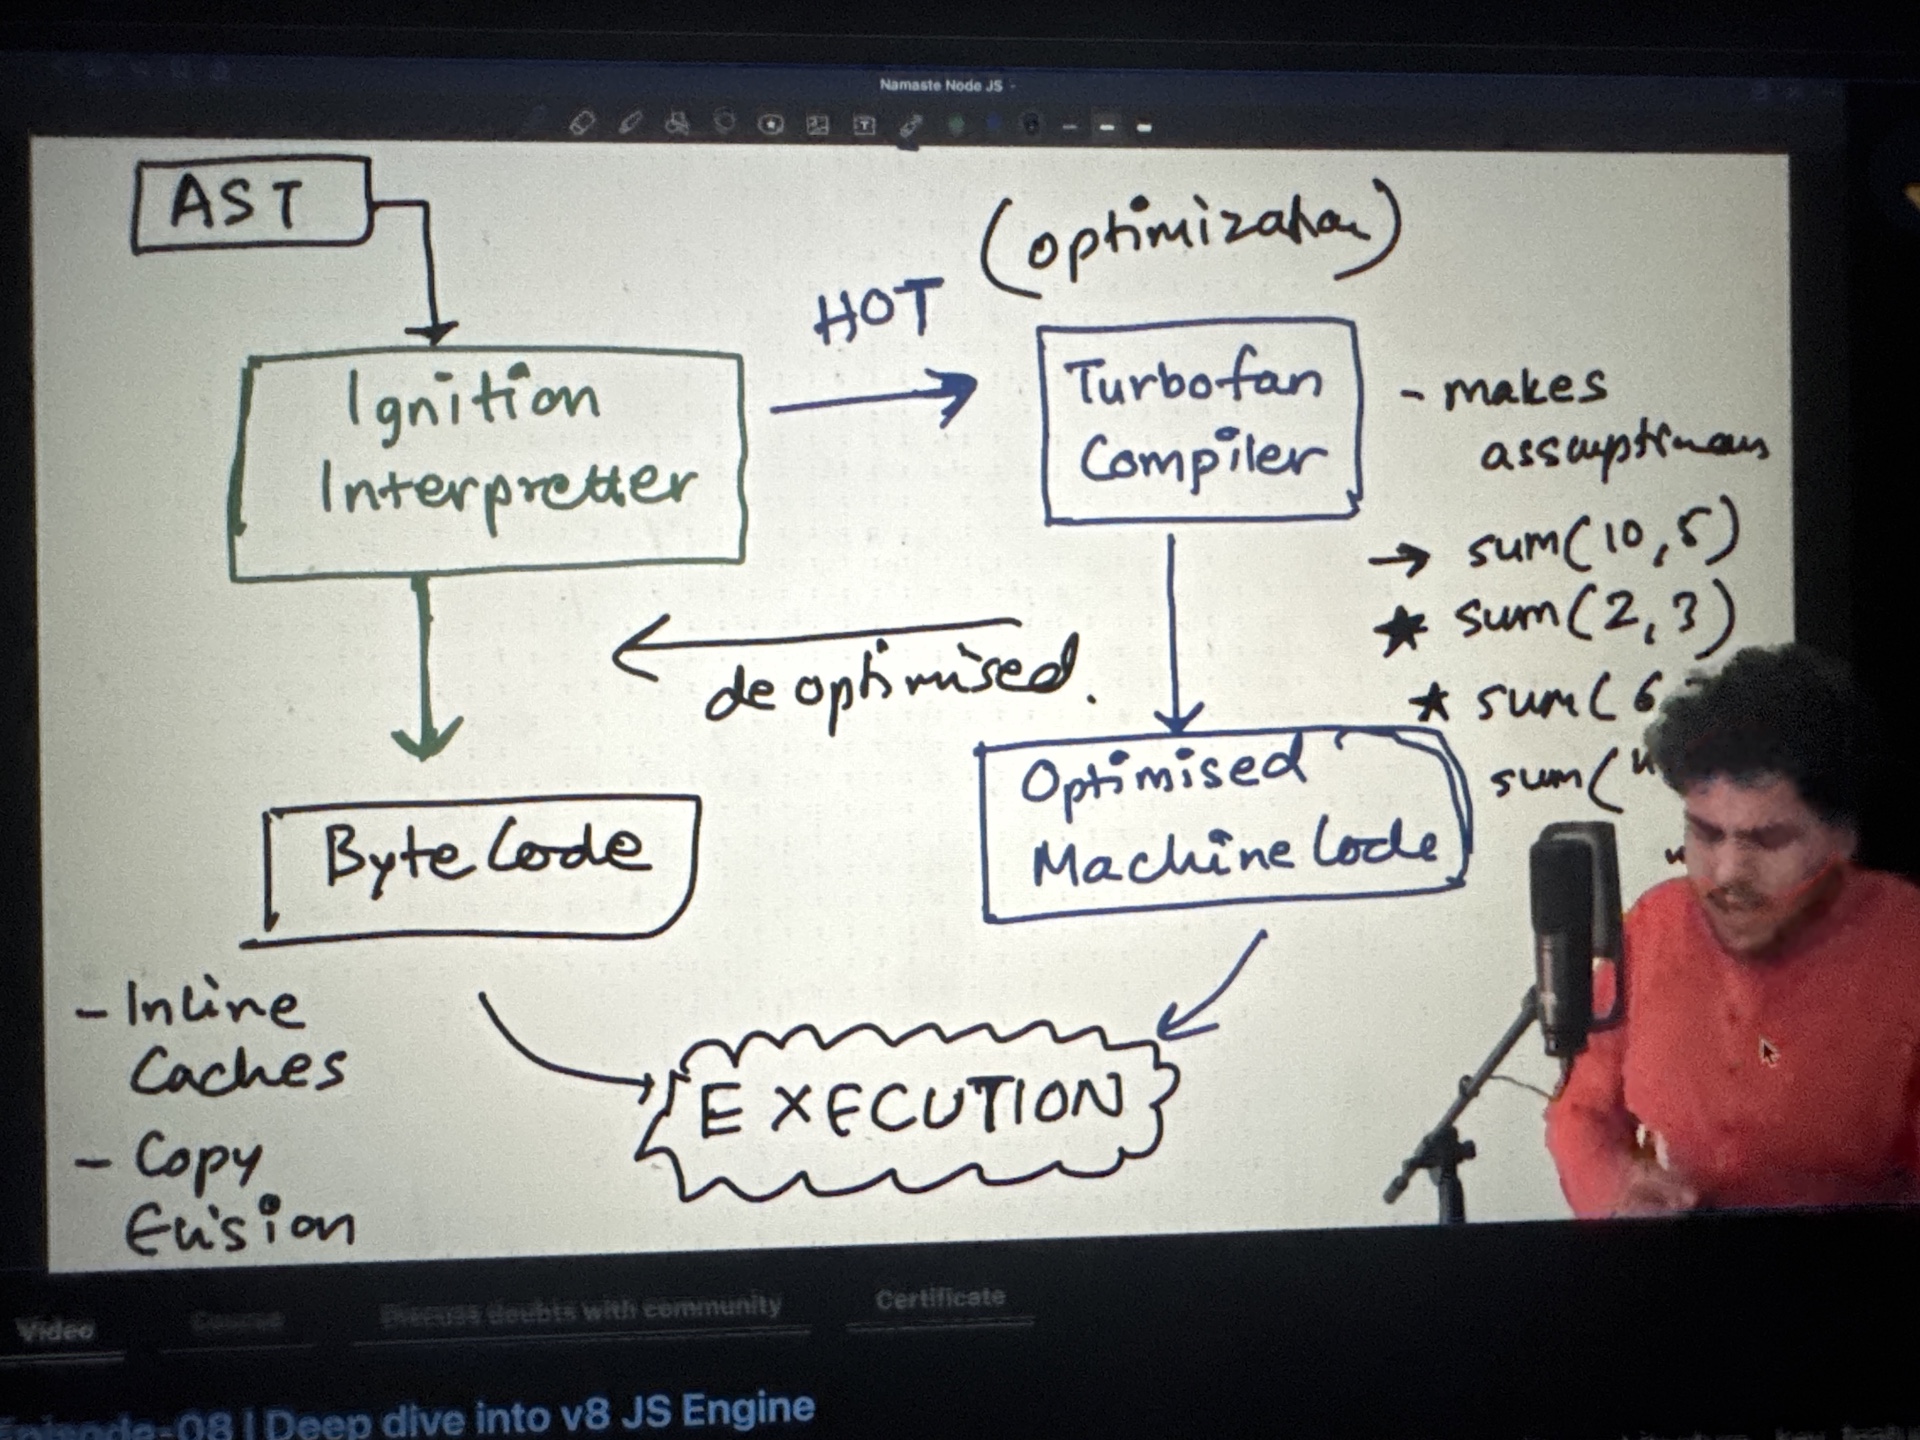 Namaste Node JS
AST
(optimization)
HOT
Ignition
Interpretter
Turbofan
Compiler
- makes
assauptimons
→ sum(10,5)
★ sum(2,3)
★ sum(6
sum("
deoptimised.
Optimised
Machine Code
Byte Code
- Inline
Caches
- Copy
Elision
EXECUTION
Video
Course
Discuss doubts with community
Certificate
Episode-08 | Deep dive into v8 JS Engine